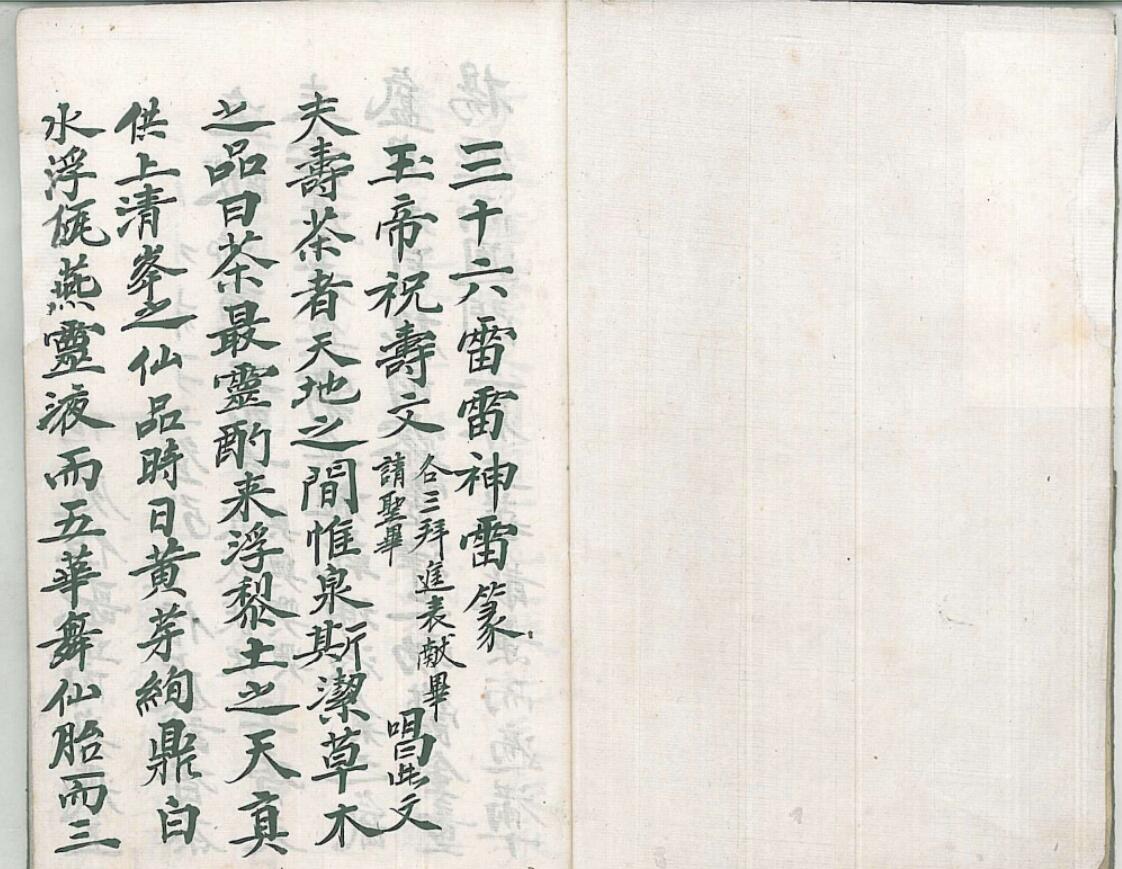 三十六雷雷神雷篆
玉帝祝壽文
各三拜進表献畢
請聖畢
唱此文
夫壽茶者天地之間惟泉斯潔草木
之品曰茶最靈酌来浮黎土之天真
供上清峯之仙品時日黄芽絢鼎白
水浮甌燕靈液而五華舞仙胎而三